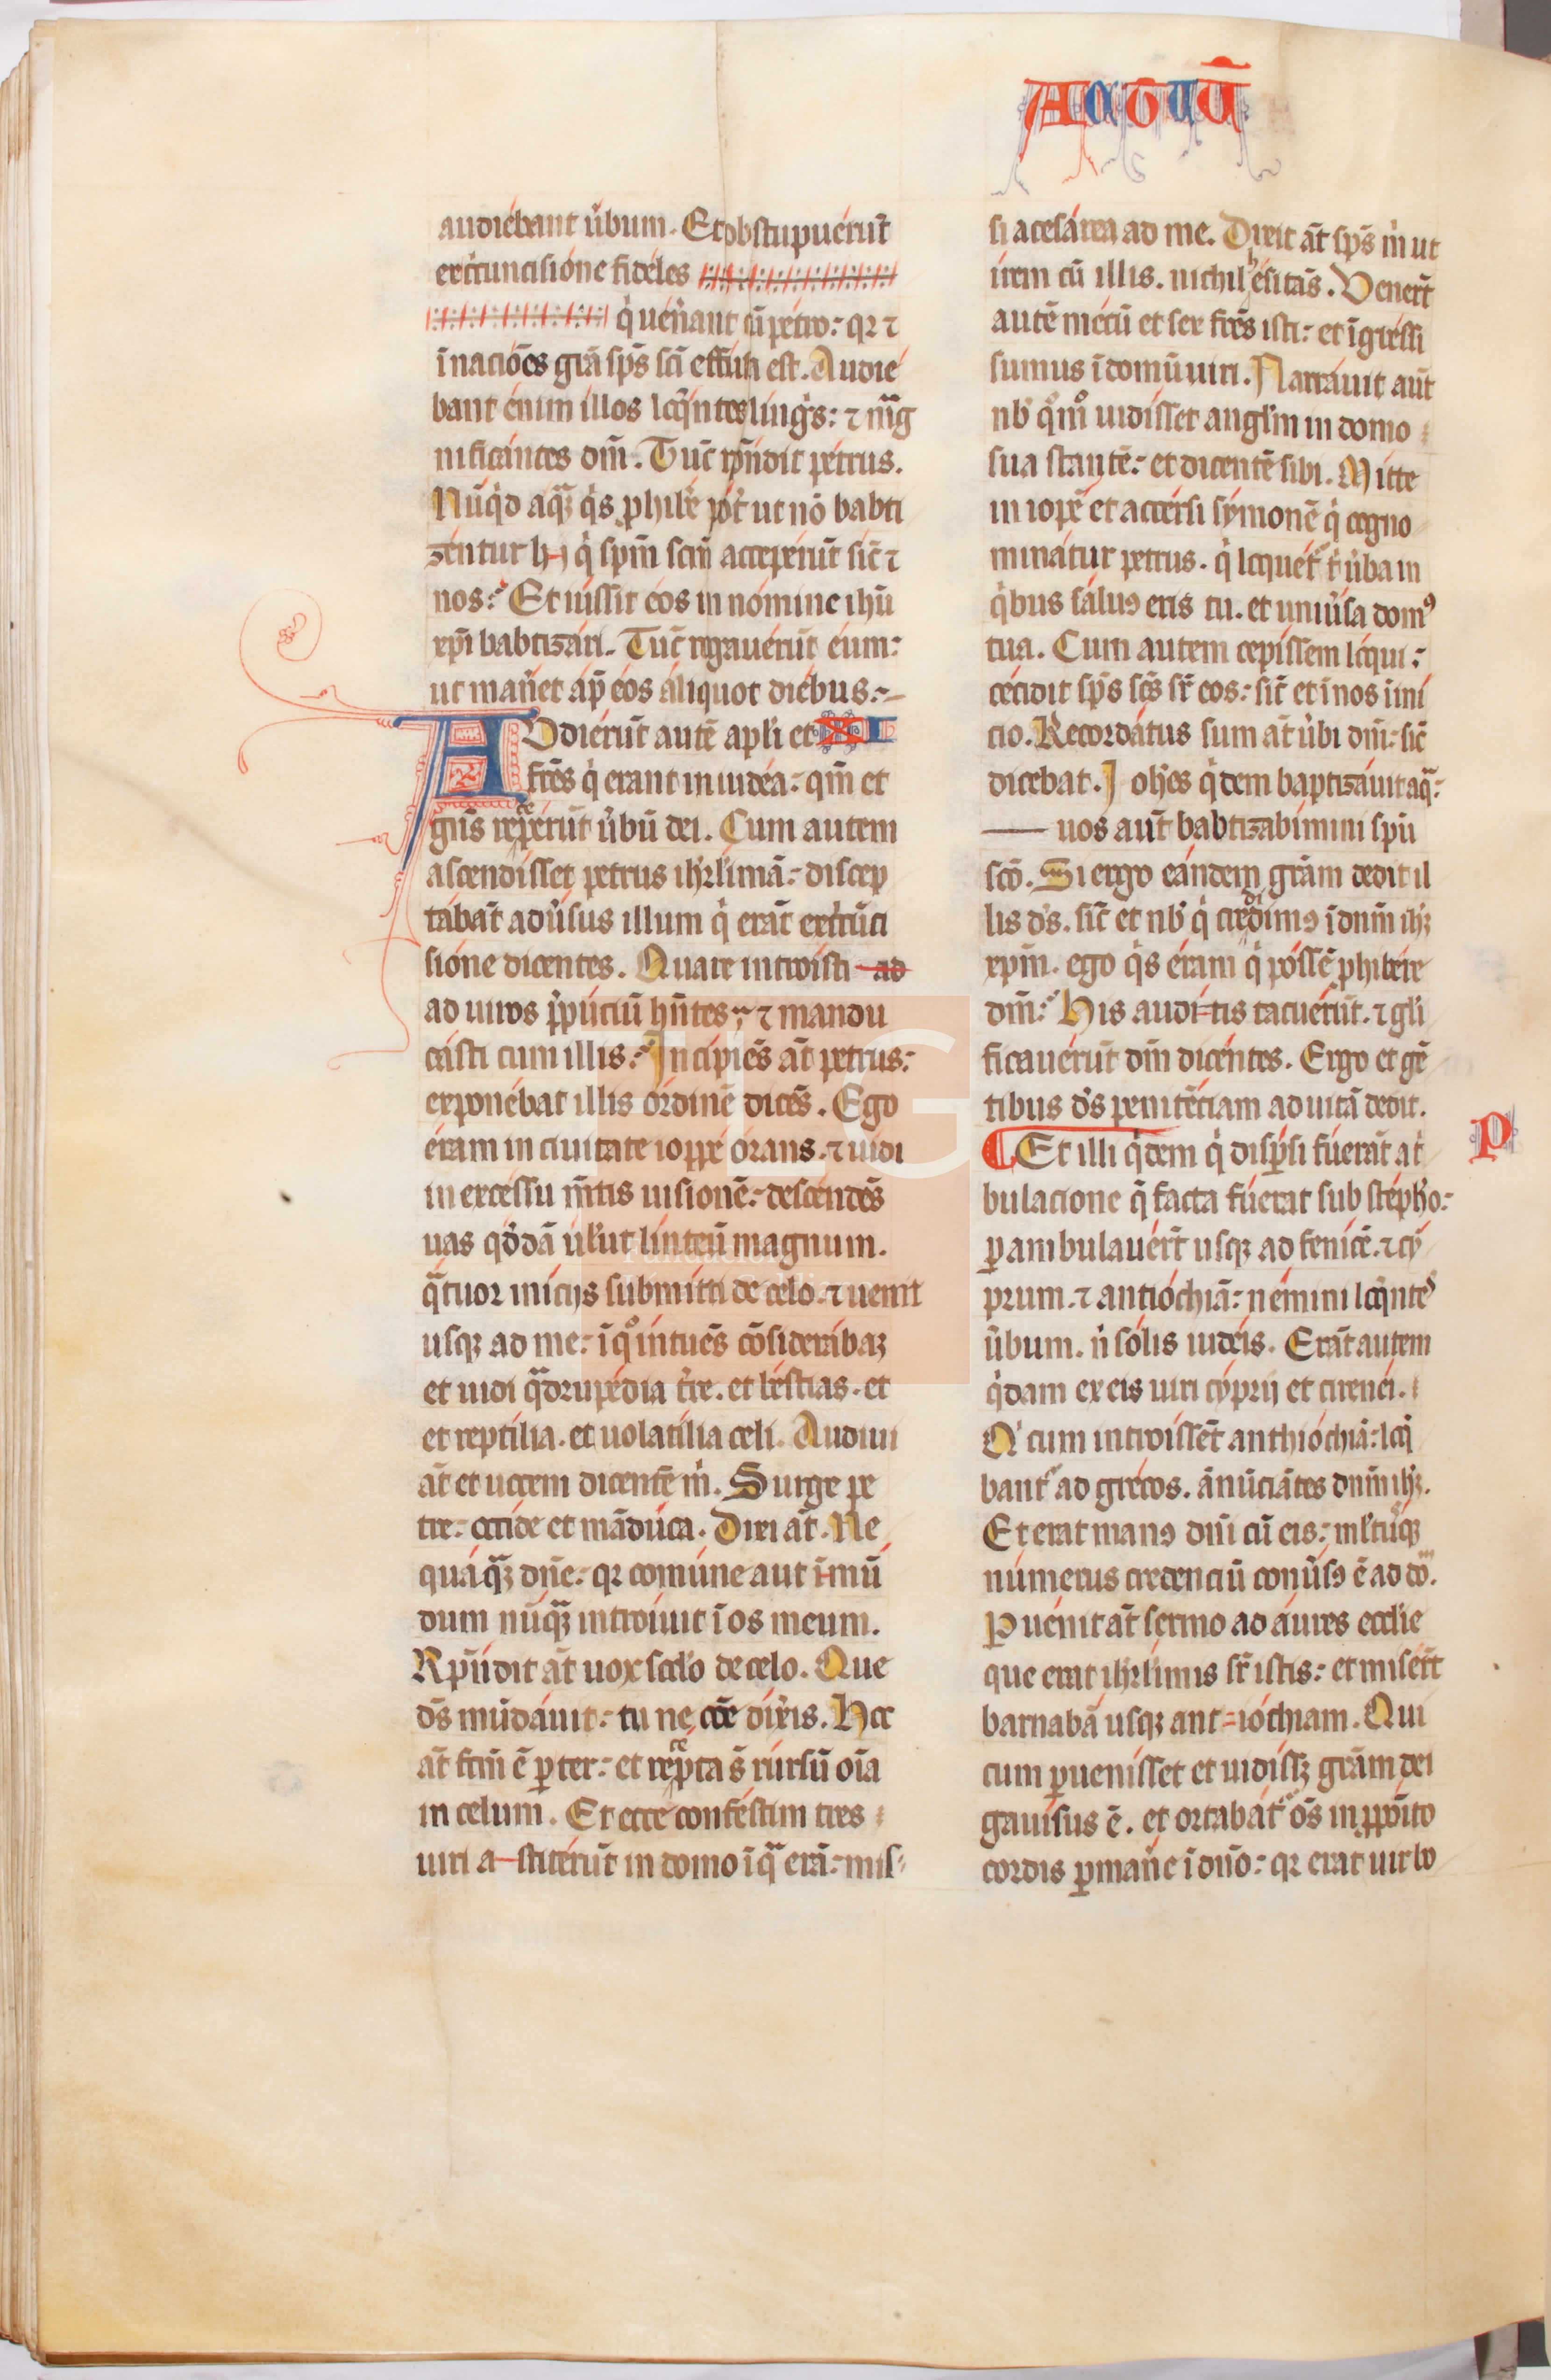 Actuū
audiebant ūbum. Et obstupuerūt
excircuncisione fideles
q̇ uen̄ant cū petro: qꝛ ⁊
ī nacio̅es grā sp̅s sc̅i effusa est. Audie
bant enim illos loq̅ntes lingͥs: ⁊ mag
nificantes dm̅. Tūc rn̅dit petrus.
Nūqͥd aquā qͥs ꝓhibe ᵱot ut nō babti
zentur hij qͥ sp̅m sc̅m acceperūt sic̄ ⁊
nos: Et iussit eos in nomine ihū
xp̅i babtizari. Tūc rogauerūt eum:
ut man̄et ap̅ eos aliquot diebus.
AUdierūt autē apl̅i et XI
fr̅es qͥ erant in iudea: qm̅ et
gn̅s receperūt ūbū dei. Cum autem
ascendisset petrus ihrl̅imā: discep
tabāt adūsus illum qͥ erāt excircūci
sione dicentes. Quare introisti ad
ad uiros p̅puciū hn̅tes: ⁊ mandu
casti cum illis: Incipiēs āt petrus:
exponebat illis ordinē dicēs. Ego
eram in ciuitate ioppe orans. ⁊ uidi
in excessu m̅tis uisionē: descendēs
uas qͦddā ūlut linteū magnum.
qͣtuor inicijs submitti de celo. ⁊ uenit
usqꝫ ad me: ī qͦ intuēs cōsiderabaꝫ
et uidi qͣdrupedia tr̅e. et bestias. et
et reptilia. et uolatilia celi. Audiui
āt et uocem dicentē m̅. Surge pe
tre: occide et māduca. Dixi āt. Ne
quaqͣꝫ dn̅e: qꝛ comune aut īmū
dum nūqͣꝫ introiuit ī os meum.
Rn̅dit āt uox scd̅o de celo. Que
ds̅ mūdauit: tu ne cōe dix̅is. Hoc
āt fc̅m ē ꝑ ter: et recepta s̄ rursū oīa
in celum. Et ecce confestim tres
uiri astiterūt in domo ī qͣ erā: mis
si a cesarea ad me. Dixit āt sp̅s m̅ ut
irem cū illis. nichil hesitās. Venert̄
autē mecū et sex fr̅es isti: et īgressi
sumus ī domū uiri. Narrauit aūt
nb̅ qͦmͦ uidisset angl̅m in domo
sua stantē: et dicentē sibi. Mitte
in iopē et accersi symonē qͥ cogno
minatur petrus. qͥ loquet̄ t̄ ūba in
qͥbus saluꝰ eris tu. et uniūsa domꝰ
tua. Cum autem cepissem loqui:
cecidit sp̅s sc̅s sr̅ eos: sic̄ et ī nos ī ini
cio. Recordatus sum āt ūbi dn̅i: sic̄
dicebat. Joh̅es qͥdem baptizauit aqͣ:
uos aūt babtizabimini sp̅u
sc̅o. Si ergo eandem gr̅am dedit il
lis ds̅. sic̄ et nb̅ qͥ credidimꝰ ī dn̅m ihꝫ
xp̅m. ego qͥs eram qͥ possē ꝓhibere
dm̅: His auditis tacuerūt. ⁊ gl̅i
ficauerūt dm̅ dicentes. Ergo et gē
tibus ds̅ penitēciam ad uitā dedit.
Et illi qͥdem qͥ disp̅si fuerāt a tͥ
P
bulacione q̅ facta fuerat sub steph̅o:
ꝑambulauert̄ usqꝫ ad fenicē. ⁊ cy
prum. ⁊ antiochiā: nemini loqn̅tes
ūbum. n̅ solis iudeis. Erāt autem
qͥdam ex eis uiri cyprij et cirenei.
Qͥ cum introissēt anthiochiā: loq̅
bant̄ ad grecos. ānūciātes dn̅m ihꝫ.
Et erat manꝰ dn̅i cū eis: ml̅tusqꝫ
numerus credenciū conūsꝰ ē ad do̅.
Peruenit āt sermo ad aures eccl̅ie
que erat ihrl̅imis sr̅ istis: et misert̄
barnabā usqꝫ antiochiam. Qui
cum ꝑuenisset et uidissꝫ gr̅am dei
gauisus ē. et ortabat̄ os̅ in ꝓpo̅ito
cordis ꝑmane̅ ī dn̅o: qꝛ erat uir bo